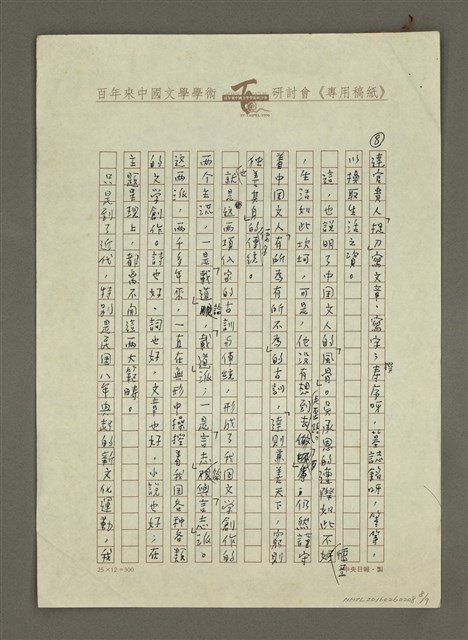 百年來中國文學學術研討會《專用稿紙》
⑧
達官貴人捉刀寫文章，寫字，奉屏呀，墓誌銘呀，等等，
以換取生活之資。
這，也說明了中国文人的風骨。吳承恩的遭際如此不好，
，生活如此坎坷，可是，他沒有想到去做，仍然謹守
着中国文人「有所為有所不為」的古訓，「達則兼善天下，窮則
獨善其身」的傳統。
就是這兩項儒家的古訓与傳統，形成了我国文学創作的
两个主流，一是「載道」論，載道派；一是言志論，言志派。
这两派，一兩千多年來，一直在無形中操控着我国各种各類
的文学創作。詩也好，詞也好，文章也好，小說也好；在
主題呈現上，都离不開這两大範疇。
只是到了近代，特別是民国八年興起的新文化運動，我
25×12=300
中央日報・製
NMTL20160260228 8/9